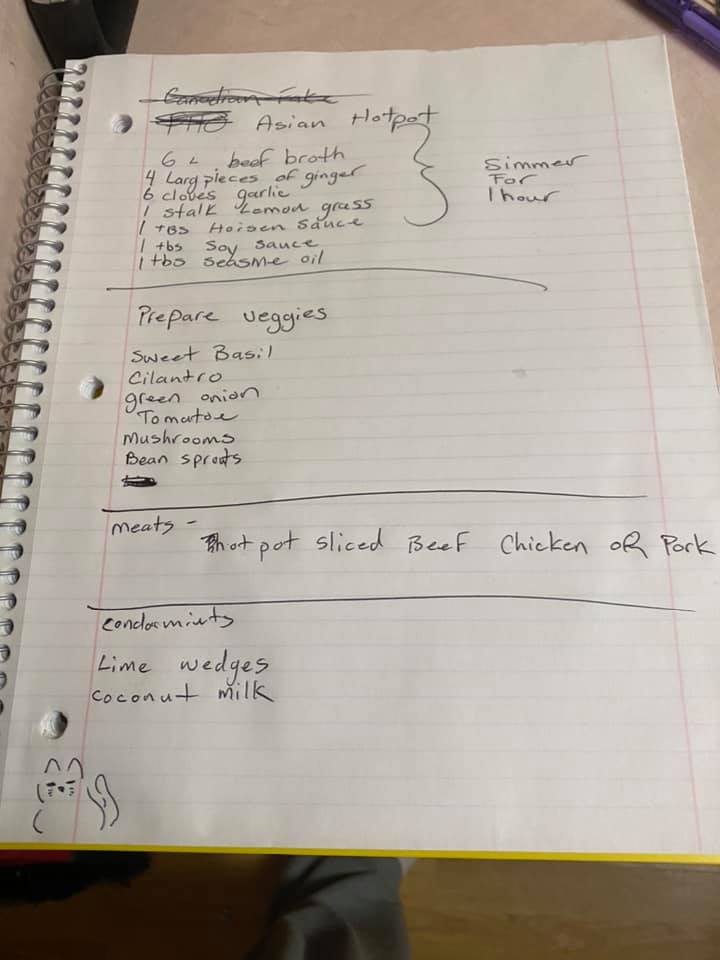 Canadian Fake
PHO Asian Hotpot
6 L beef broth
4 Larg pieces of ginger
6 cloves garlic
1 stalk Lemon grass
1 tBS Hoisen Sauce
1 tbs Soy sauce
1 tbs Seasme oil
Simmer
For
1 hour
Prepare veggies
Sweet Basil
Cilantro
green onion
Tomatoe
Mushrooms
Bean sprots
meats -
hot pot sliced Beef Chicken OR Pork
Condamints
Lime wedges
coconut milk